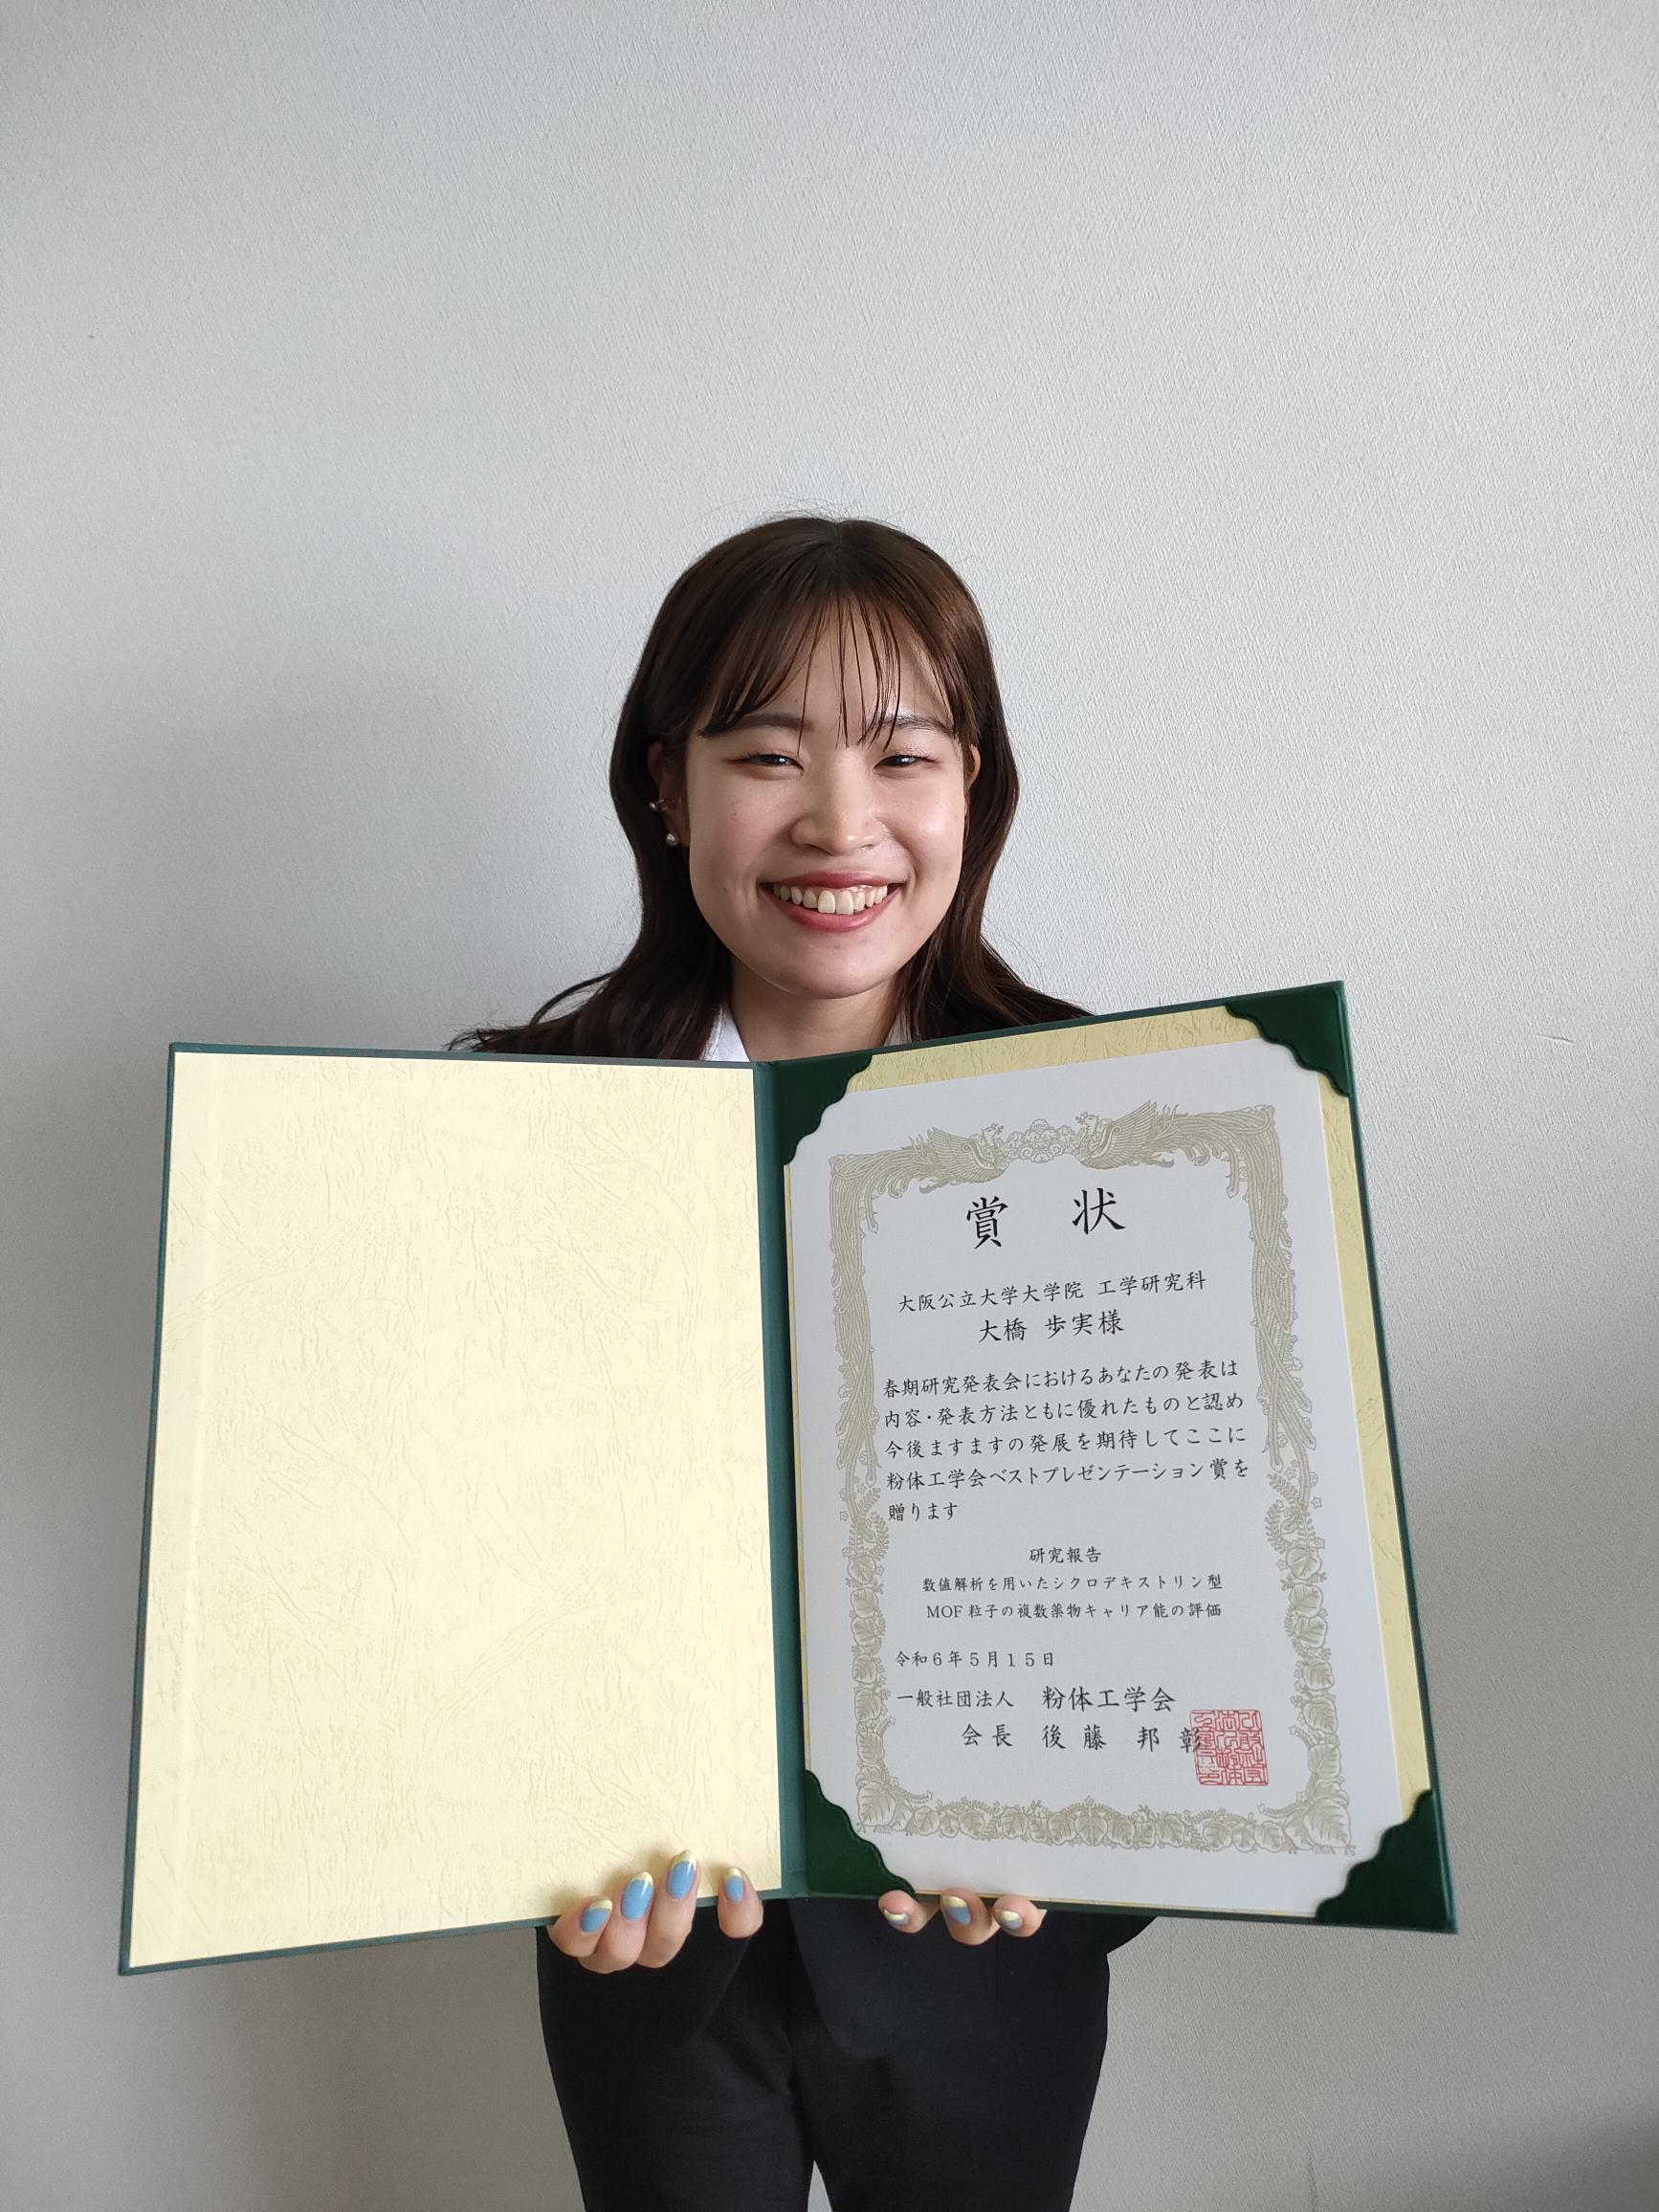 賞状
大阪公立大学大学院 工学研究科
大橋 歩実様
春期研究発表会におけるあなたの発表は
内容・発表方法ともに優れたものと認め
今後ますますの発展を期待してここに
粉体工学会ベストプレゼンテーション賞を
贈ります
研究報告
数値解析を用いたシクロデキストリン型
MOF粒子の複数薬物キャリア能の評価
令和6年5月15日
一般社団法人 粉体工学会
会長 後藤 邦彰